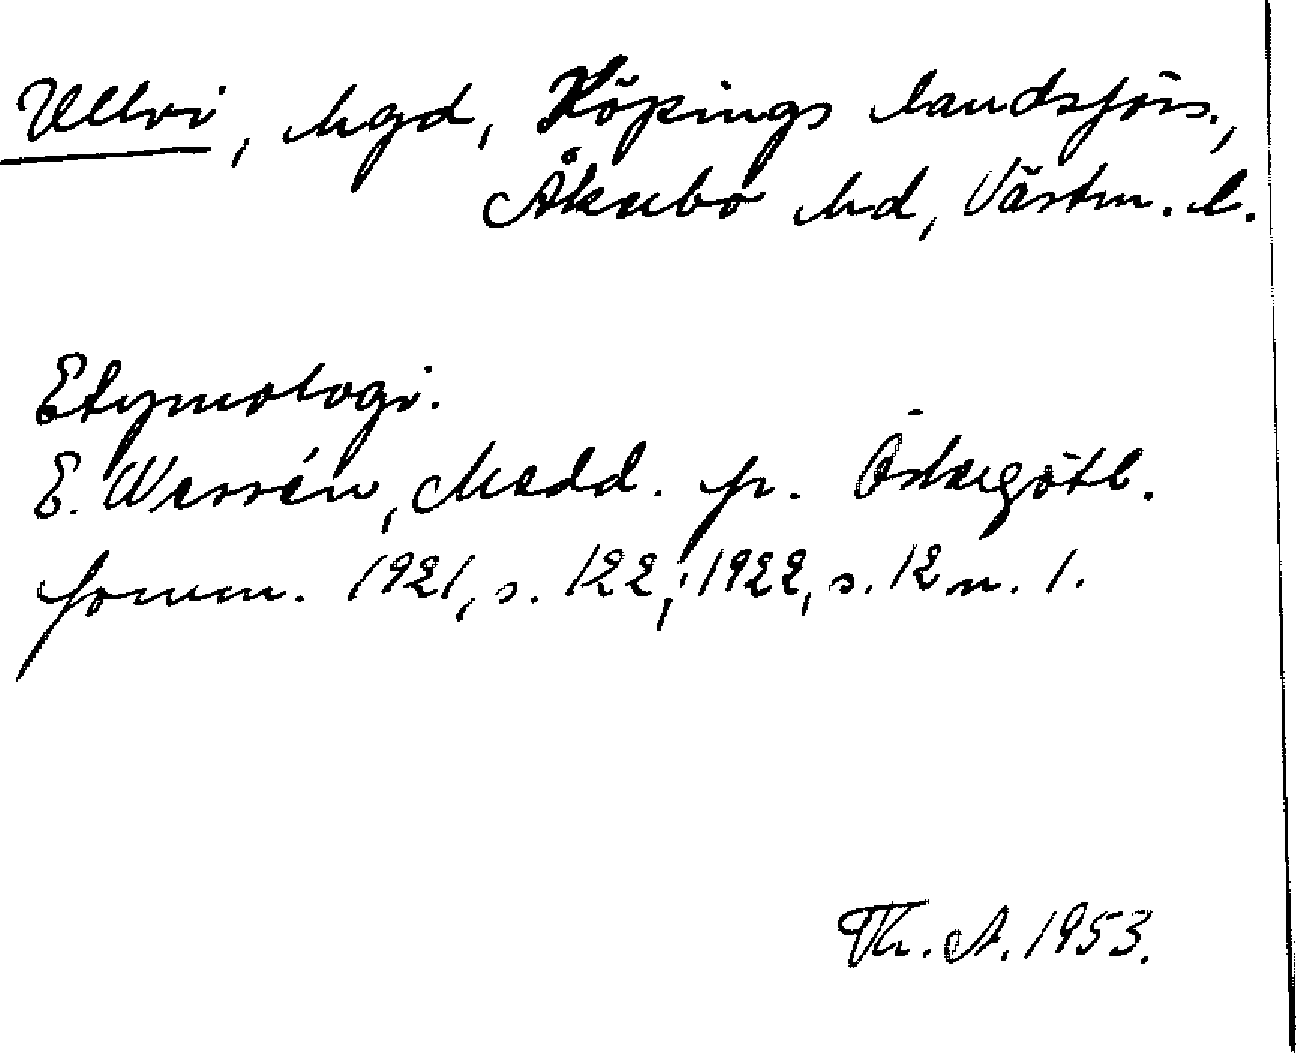 Ullvi, hgd, Köpings landsförs.,
Åkerbo hd, Västm. l.
Etymologi.
E. Wessén, Medd. fr. Östergötl.
fornm. 1921, s. 122; 1922, s. 12 n. 1.
Th. A. 1953.